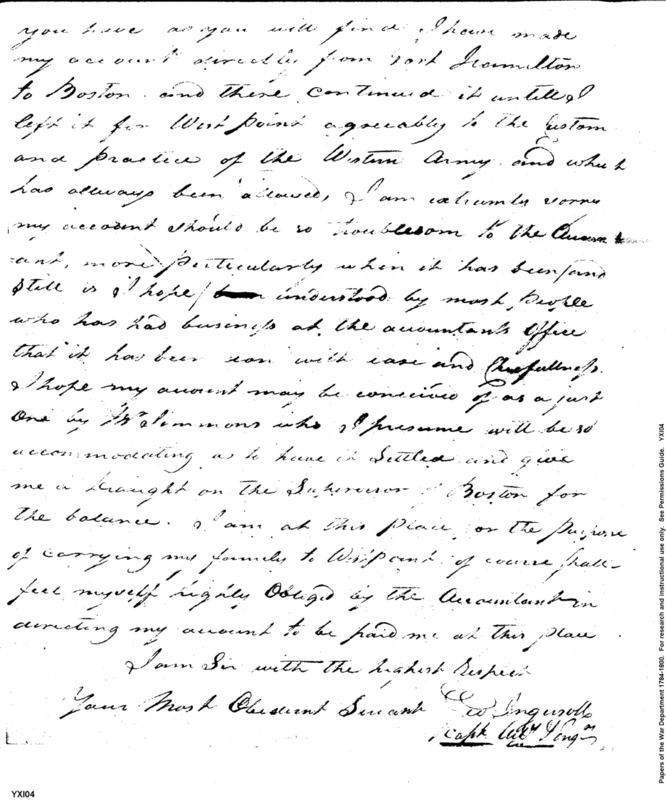 you have as you will find I have made
my account directly from Fort Hamilton
to Boston and there continued it untill I
left it for West Point agreeably to the Custom
and practice of the Western Army and which
has allways been allowed, I am extremly sorry
my account should be so troublesom to the Account
ant, more perticularly when it has been (and
still is I hope) understood by most People
who has had business at the accountants Office
that it has been don with ease and Cheefullness.
I hope my account may be conceived of as a just
One by Mr Simmons who I presume will be so
accommodating as to have it Settled and give
me a Draught on the Supervisor of Boston for
the balance. I am at this place for the Purpose
of carrying my family to Westpoint of course shall
feel myself highly Obliged by the Accountant in
directing my account to be paid me at this place
I am Sir with the highest Respect
Your Most Obedient Servant Geo Ingersoll
Capt
YXI04
Papers of the War Department 1784-1800. For research and instructional use only. See Permissions Guide. YXI04